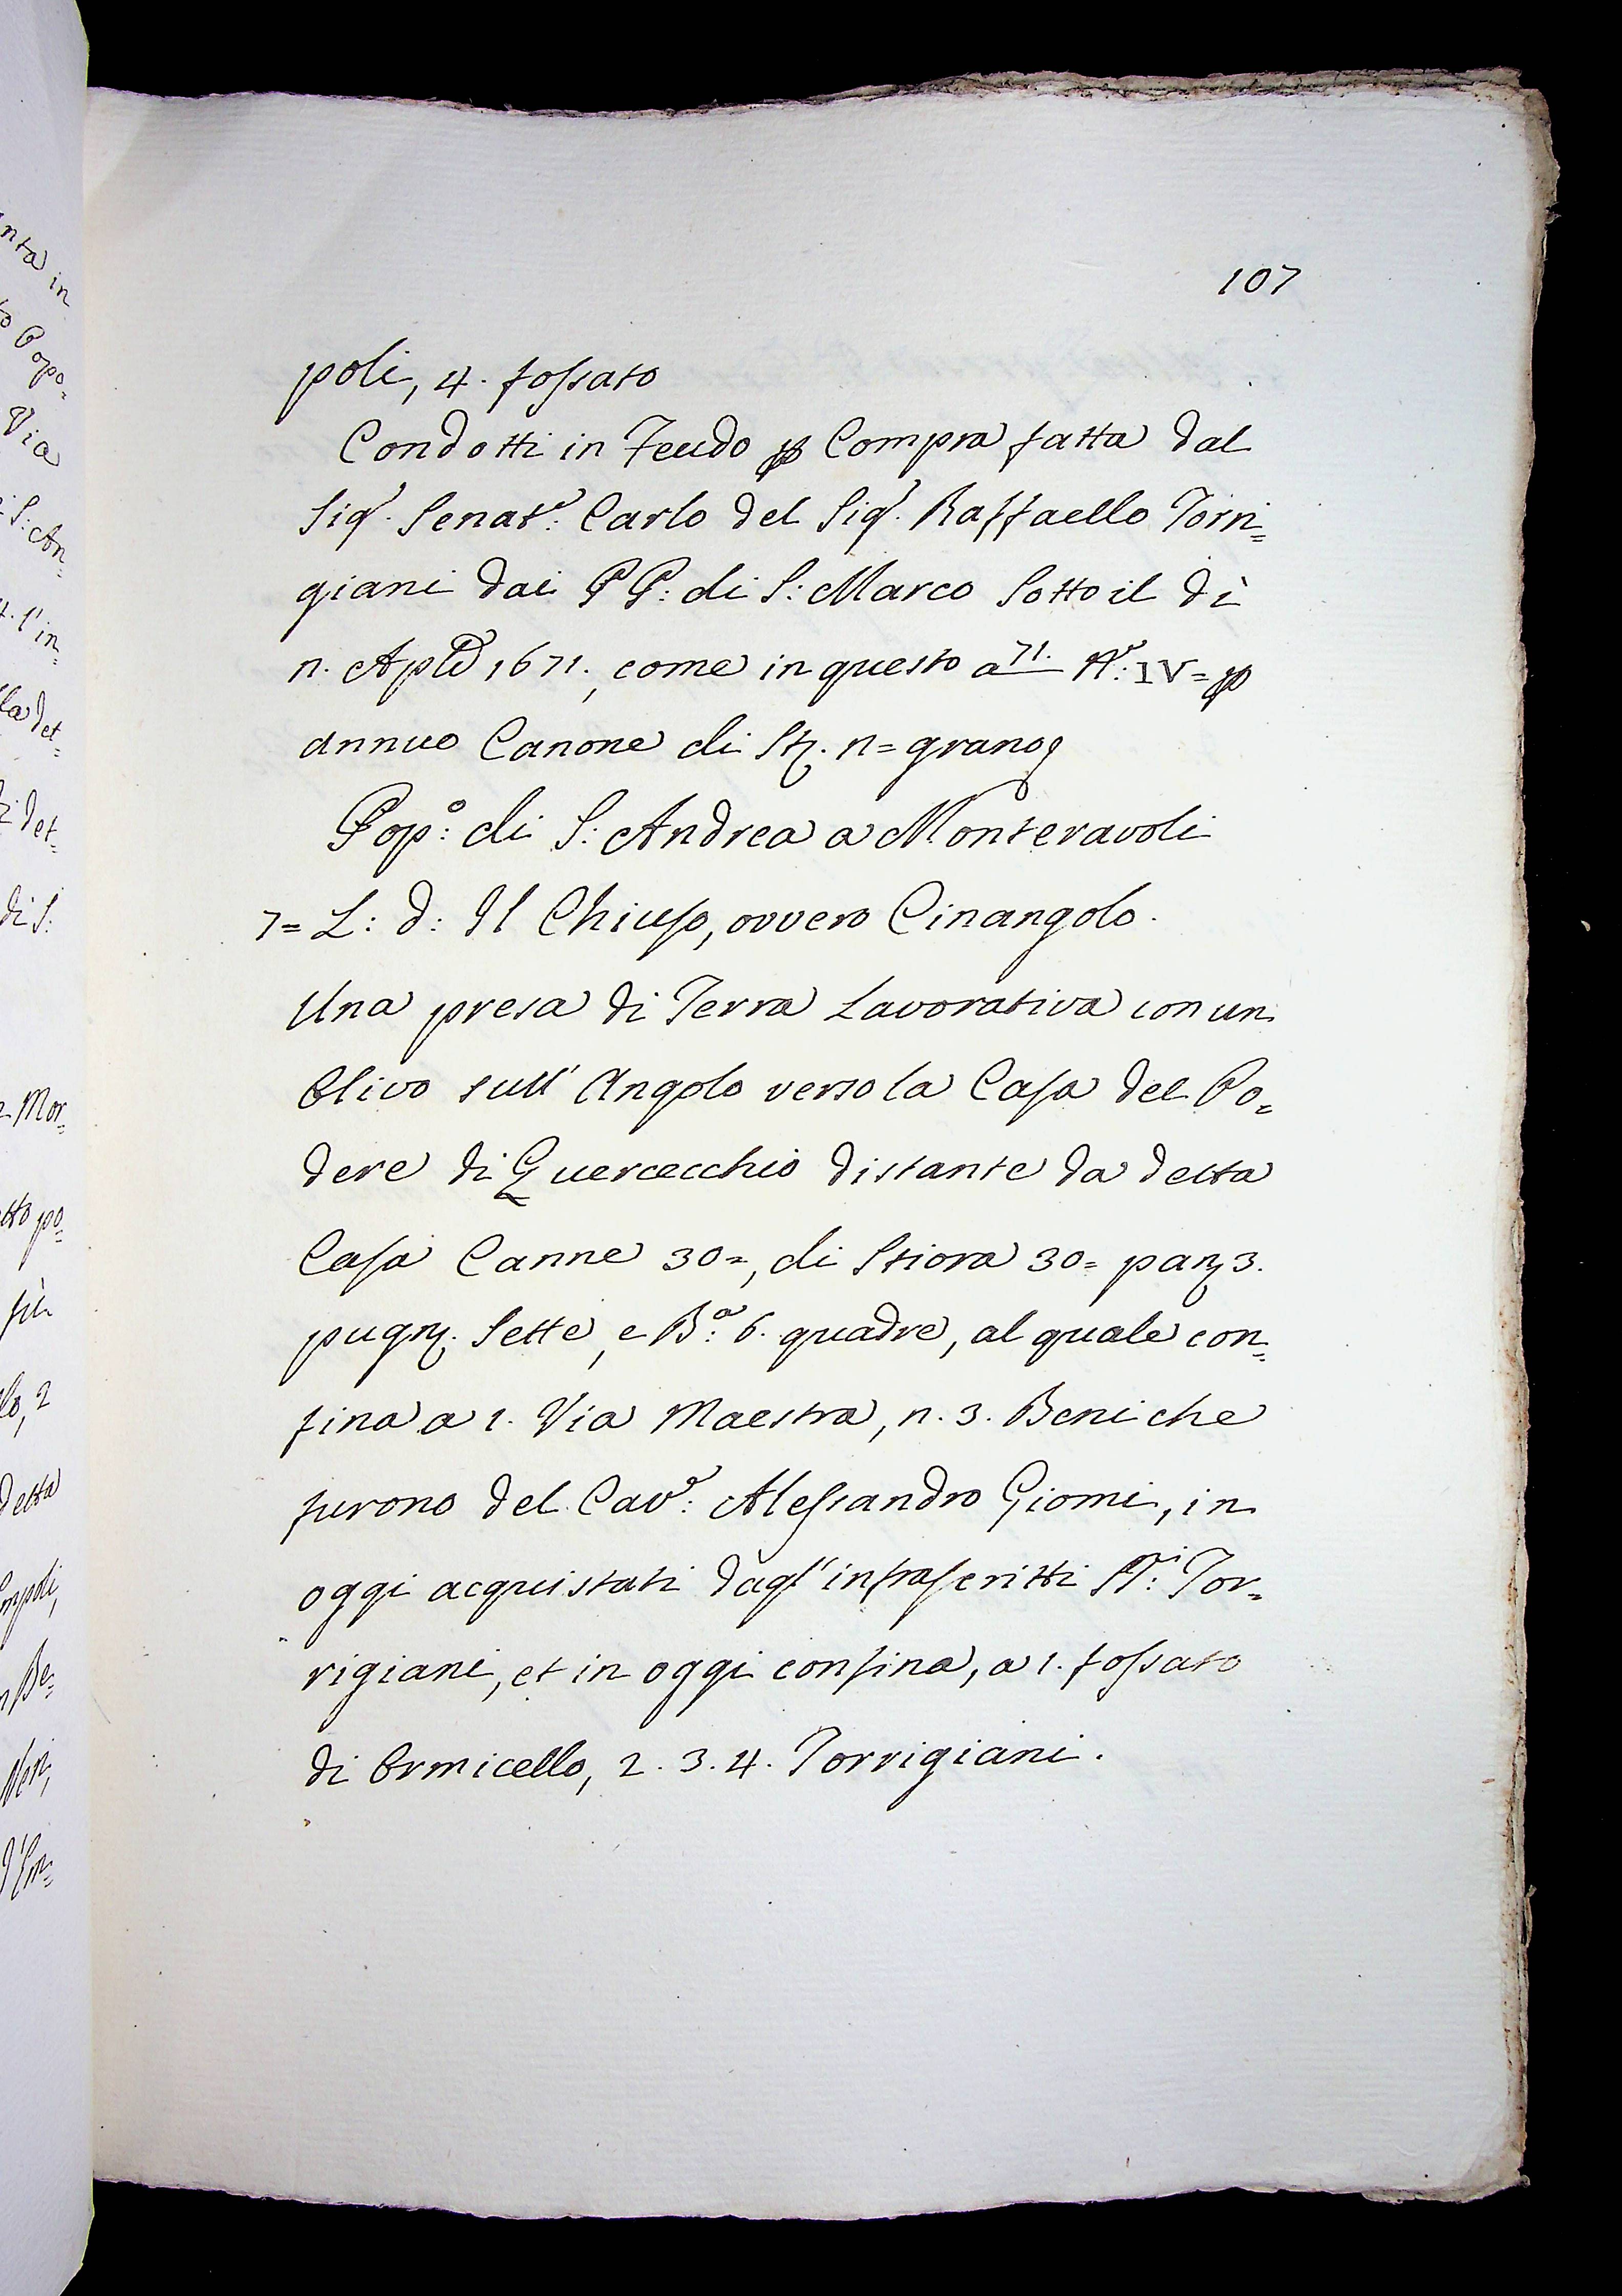 107
poli, 4. fossato
Condotti in Feudo p Compra fatta dal
Sig.r Senat.e: Carlo del Sig.r Raffaello Torri=
giani dai PP: di S: Marco Sotto il dì
11. Aple 1671., come in questo a 71. N.o: IV= p
annuo Canone di Sta. 11= grano
Pop.o: di S: Andrea a Monteravoli
7= L: d: Il Chiuso, ovvero Cinangolo.
Una presa di Terra Lavorativa con un
Olivo sull' Angolo verso la Casa del Po=
dere di Quercecchio distante da detta
Casa Canne 30=, di Stiora 30= pan 3.
pugn. Sette, e B.a: 6. quadre, al quale con=
fina a 1. Via Maestra, 11. 3. Beni che
furono del Cav.e: Alessandro Giomi, in
oggi acquistati dagl' infrascritti SS.ri: Tor=
rigiani, et in oggi confina, a 1. fossato
di Ormicello, 2. 3. 4. Torrigiani.